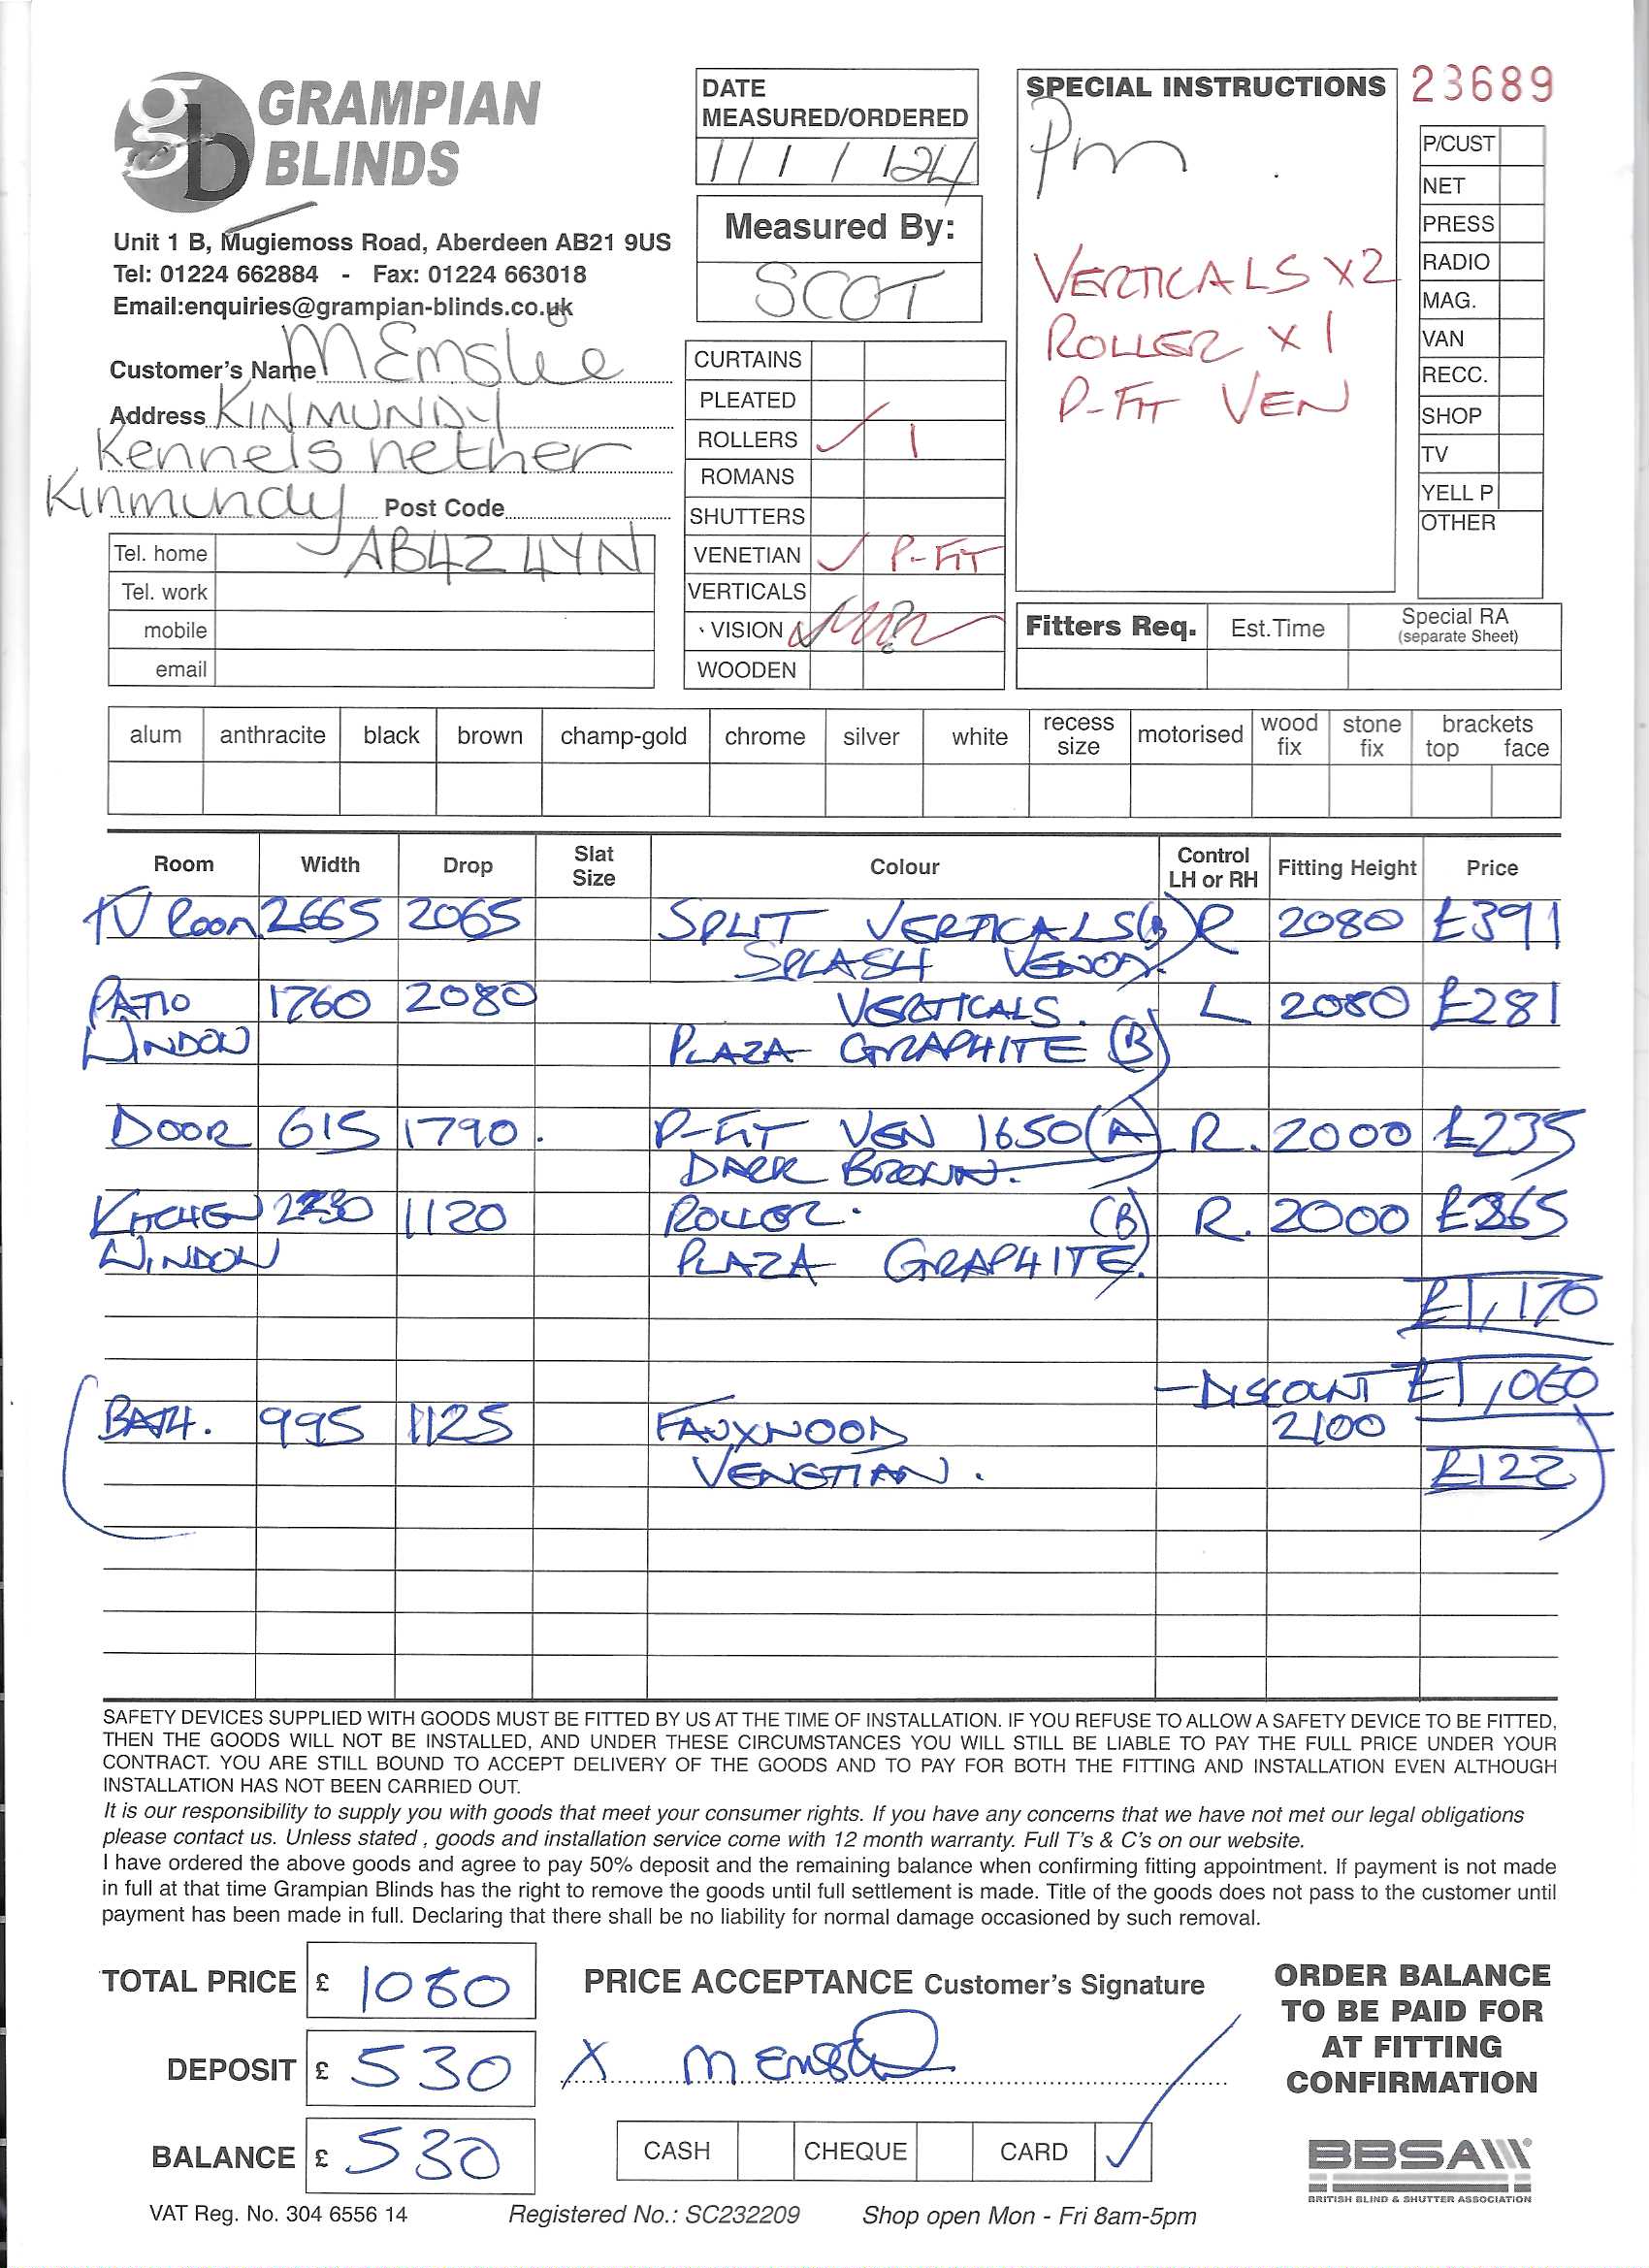 GRAMPIAN
BLINDS
Unit 1 B, Mugiemoss Road, Aberdeen AB21 9US
Tel: 01224 662884 - Fax: 01224 663018
Email:enquiries@grampian-blinds.co.uk
Customer's Name M Emslie
Address KINMUNDY
Kennels nether
Kinmundy Post Code
Tel. home AB42 4YN
Tel. work
mobile
email
DATE
MEASURED/ORDERED
11/1/24
Measured By:
SCOT
CURTAINS
PLEATED
ROLLERS ✓ 1
ROMANS
SHUTTERS
VENETIAN ✓ P-FIT
VERTICALS
VISION
WOODEN
SPECIAL INSTRUCTIONS
Pm
VERTICALS X2
ROLLER X 1
P-FIT VEN
23689
P/CUST
NET
PRESS
RADIO
MAG.
VAN
RECC.
SHOP
TV
YELL P
OTHER
Fitters Req. Est.Time Special RA
(separate Sheet)
alum anthracite black brown champ-gold chrome silver white recess size motorised wood fix stone fix brackets top face
Room Width Drop Slat Size Colour Control LH or RH Fitting Height Price
TV Room 2665 2065 SPLIT VERTICALS (B) R 2080 £391
SPLASH
PATIO 1760 2080 VERTICALS. L 2080 £281
WINDOW PLAZA GRAPHITE (B)
DOOR 615 1790. P-FIT VEN 1650 (A) R. 2000 £235
DARK BROWN.
KITCHEN 1120 ROLLER. (B) R. 2000
WINDOW PLAZA GRAPHITE.
£1,170
- DISCOUNT £1,060
BATH. 995 1125 FAUXWOOD 2100
VENETIAN. £122
SAFETY DEVICES SUPPLIED WITH GOODS MUST BE FITTED BY US AT THE TIME OF INSTALLATION. IF YOU REFUSE TO ALLOW A SAFETY DEVICE TO BE FITTED,
THEN THE GOODS WILL NOT BE INSTALLED, AND UNDER THESE CIRCUMSTANCES YOU WILL STILL BE LIABLE TO PAY THE FULL PRICE UNDER YOUR
CONTRACT. YOU ARE STILL BOUND TO ACCEPT DELIVERY OF THE GOODS AND TO PAY FOR BOTH THE FITTING AND INSTALLATION EVEN ALTHOUGH
INSTALLATION HAS NOT BEEN CARRIED OUT.
It is our responsibility to supply you with goods that meet your consumer rights. If you have any concerns that we have not met our legal obligations
please contact us. Unless stated , goods and installation service come with 12 month warranty. Full T's & C's on our website.
I have ordered the above goods and agree to pay 50% deposit and the remaining balance when confirming fitting appointment. If payment is not made
in full at that time Grampian Blinds has the right to remove the goods until full settlement is made. Title of the goods does not pass to the customer until
payment has been made in full. Declaring that there shall be no liability for normal damage occasioned by such removal.
TOTAL PRICE £ 1060
DEPOSIT £ 530
BALANCE £ 530
PRICE ACCEPTANCE Customer's Signature
X M Emslie
CASH CHEQUE CARD ✓
ORDER BALANCE
TO BE PAID FOR
AT FITTING
CONFIRMATION
BBSA
BRITISH BLIND & SHUTTER ASSOCIATION
VAT Reg. No. 304 6556 14 Registered No.: SC232209 Shop open Mon - Fri 8am-5pm